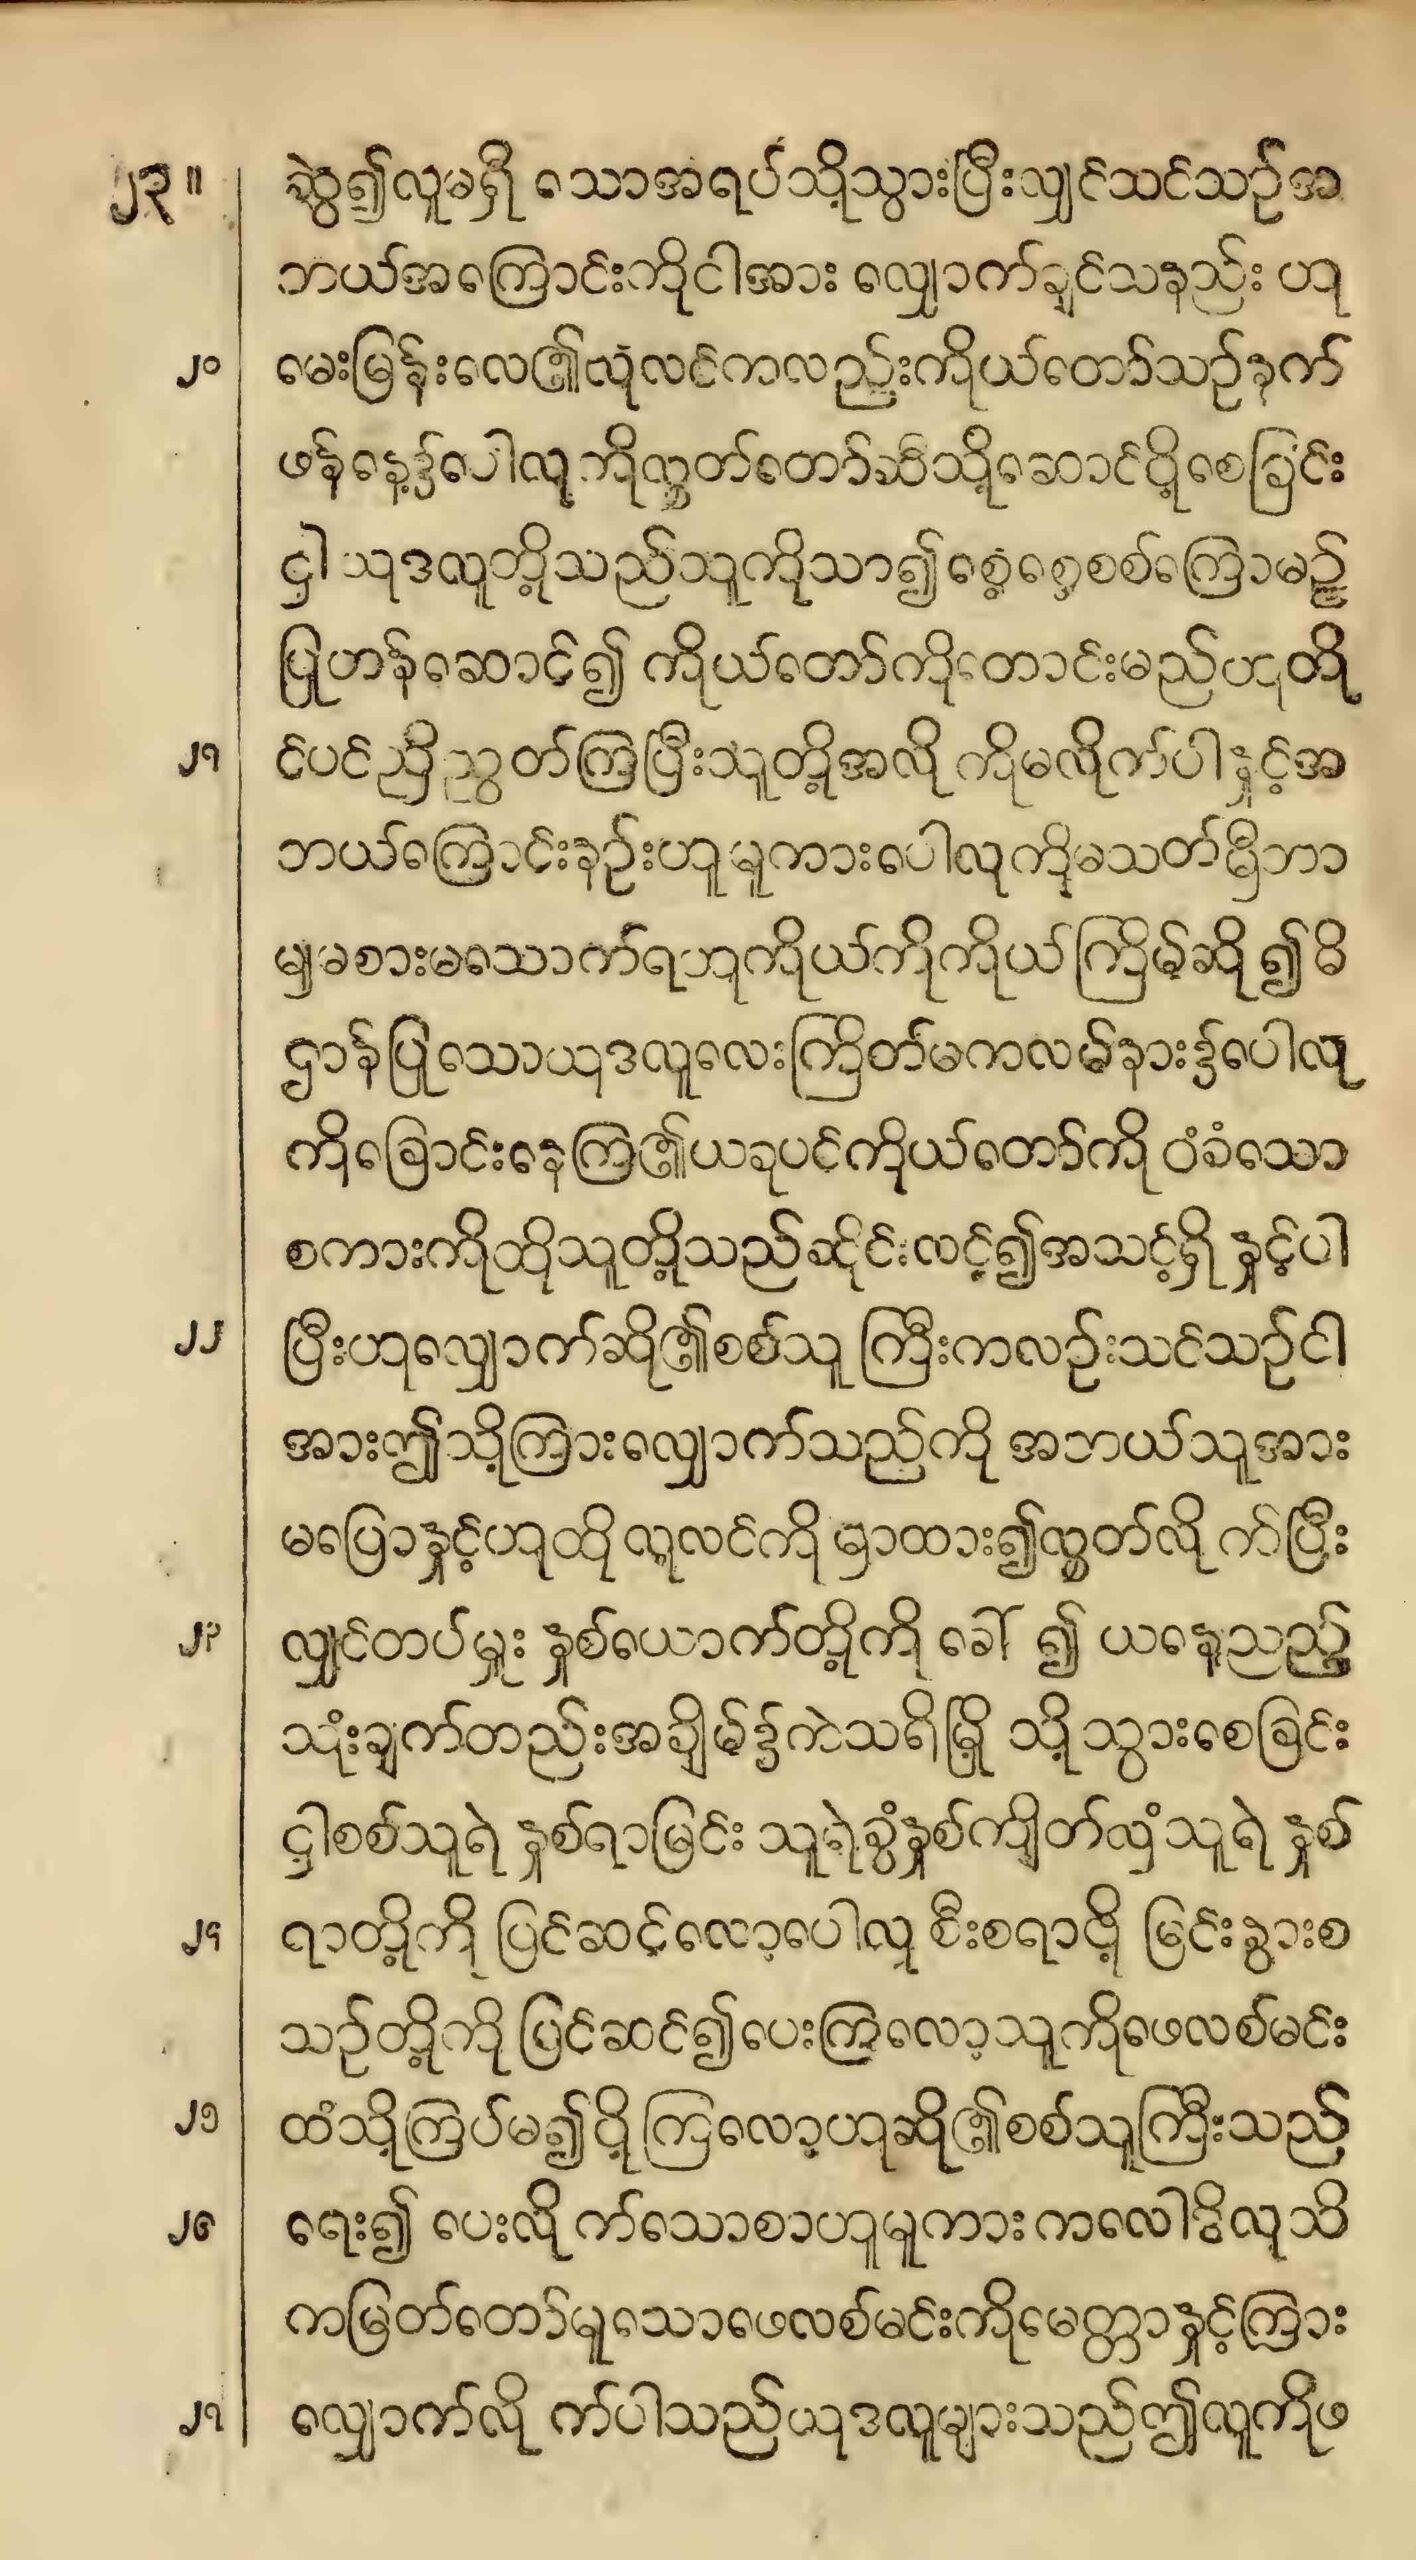 ၂၃။ ဆွဲ၍လူမရှိ သောအရပ်သို့သွားပြီးလျှင်သင်သဉ်အ
ဘယ်အကြောင်းကိုငါအား လျှောက်ချင်သနည်း ဟု
၂၀ မေးမြန်းလေ၏လုံလင်ကလည်းကိုယ်တော်သဉ်နက်
ဖန်နေ့၌ပေါလုကိုလွှတ်တော်ဆီသို့ဆောင်ပို့စေခြင်း
ငှါ ယုဒလူတို့သည်သူကိုသာ၍စေ့စေ့စစ်ကြောမဉ်
ပြုဟန်ဆောင်၍ ကိုယ်တော်ကိုတောင်းမည်ဟုတို
၂၁ င်ပင်ညှိညွတ်ကြပြီးသူတို့အလို ကိုမလိုက်ပါနှင့်အ
ဘယ်ကြောင်းနဉ်းဟူမူကားပေါလုကိုမသတ်မှီဘာ
မျှမစားမသောက်ရဟုကိုယ်ကိုကိုယ် ကြိမ်ဆို ၍ဓိ
ဌာန်ပြုသောယုဒလူလေးကြိတ်မကလမ်နား၌ပေါလု
ကိုခြောင်းနေကြ၏ယခုပင်ကိုယ်တော်ကို ဝံခံသော
စကားကိုထိုသူတို့သည်ဆိုင်းလင့်၍အသင့်ရှိ နှင့်ပါ
၂၂ ပြီးဟုလျှောက်ဆို၏စစ်သူ ကြီးကလဉ်းသင်သဉ်ငါ
အားဤသို့ကြားလျှောက်သည်ကို အဘယ်သူအား
မပြောနှင့်ဟုထို လုလင်ကို မှာထား၍လွှတ်လို က်ပြီး
၂၃ လျှင်တပ်မှူး နှစ်ယောက်တို့ကို ခေါ် ၍ ယနေ့ညည့်
သုံးချက်တည်းအချိမ်၌ကဲသရိမြို့ သို့သွားစေခြင်း
ငှါစစ်သူရဲ နှစ်ရာမြင်း သူရဲခွံနှစ်ကျိတ်လှံသူရဲ နှစ်
၂၄ ရာတို့ကို ပြင်ဆင့်လော့ပေါလု စီးစရာဖို့ မြင်းနွားစ
သဉ်တို့ကို ပြင်ဆင်၍ပေးကြလော့သူကိုဖေလစ်မင်း
၂၅ ထံသို့ကြပ်မ၍ပို့ကြလော့ဟုဆို၏စစ်သူကြီးသည်
၂၆ ရေး၍ ပေးလို က်သောစာဟူမူကားကလေါဒိလုသိ
ကမြတ်တော်မူသောဖေလစ်မင်းကိုမေတ္တာနှင့်ကြား
၂၇ လျှောက်လို က်ပါသည်ယုဒလူများသည်ဤလူကိုဖ